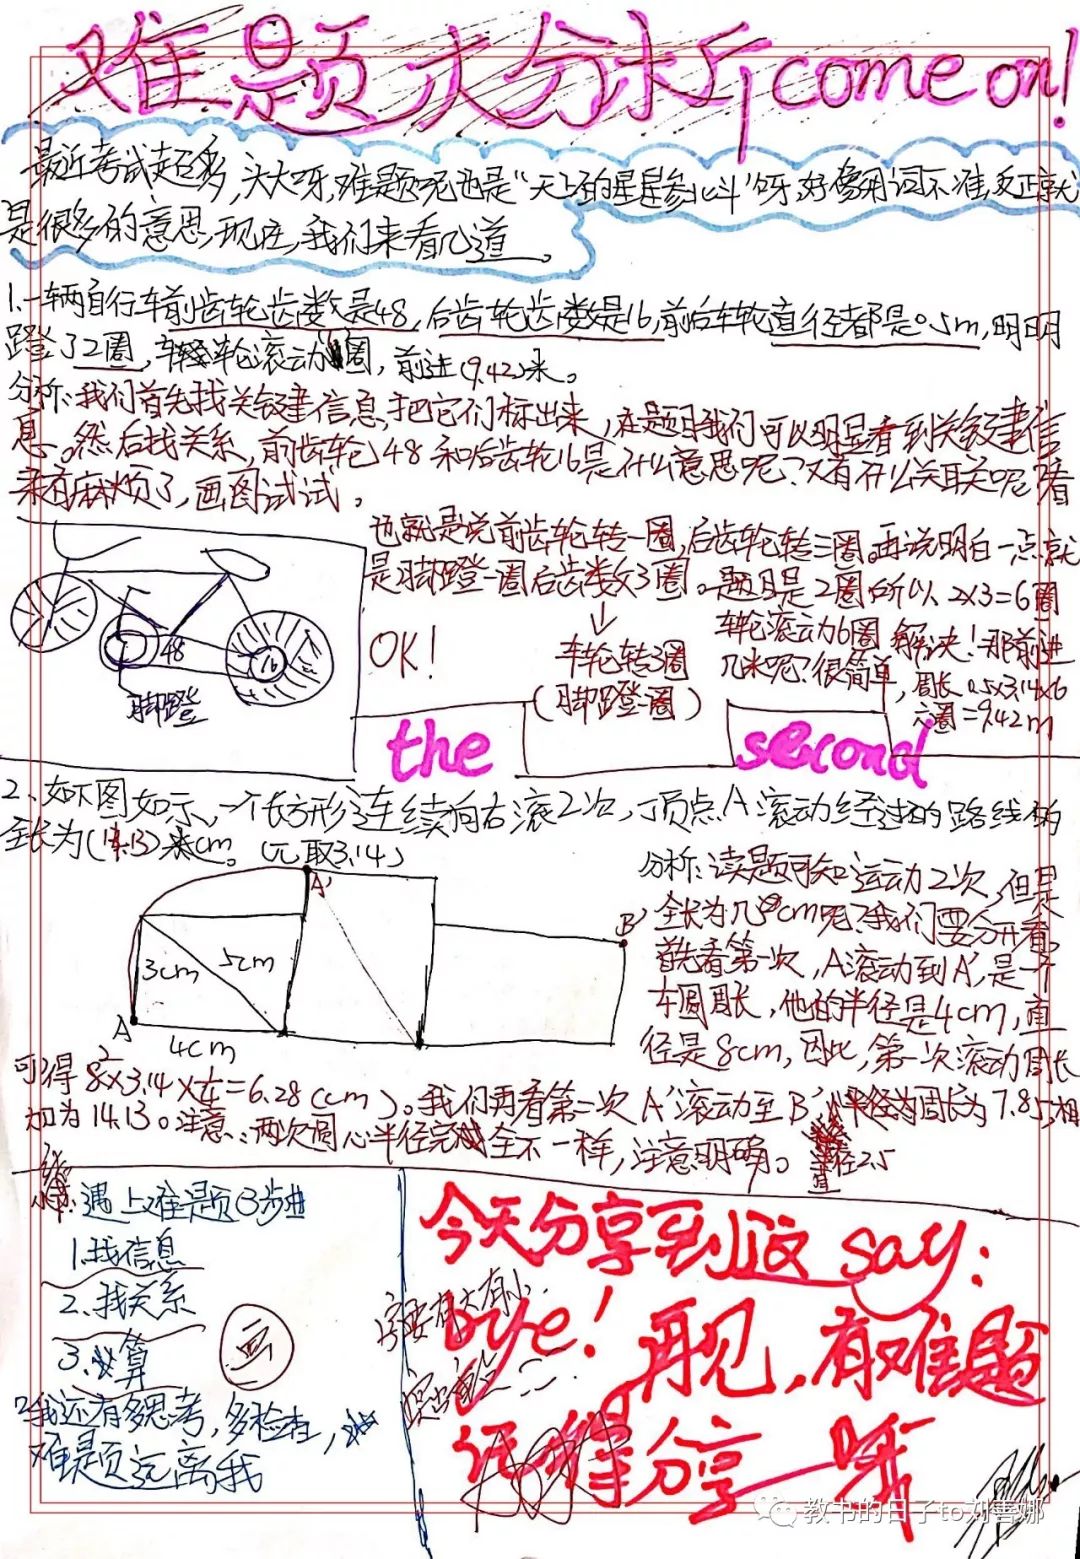 难题大分析 come on!
最近考试超多,头大呀,难题呢也是“天上的星星参北斗”呀 好像用词不准,反正就
是很多的意思,现在,我们来看几道。
1.一辆自行车前齿轮齿数是48,后齿轮齿数是16,前后车轮直径都是0.5m,明明
蹬了2圈,车轮滚动圈,前进(9.42)米。
分析:我们首先找关键信息,把它们标出来,在题目我们可以明显看到关键信
息。然后找关系,前齿轮48和后齿轮16是什么意思呢?又有什么关联呢?看
来有麻烦了,画图试试。
48
16
脚蹬
也就是说前齿轮转一圈,后齿轮转三圈。再说明白一点就
是脚蹬一圈后齿数3圈。题目是2圈所以2×3=6圈
OK!
↓
车轮转3圈
(脚蹬一圈)
车轮滚动6圈 解决!那前进
几米呢?很简单,周长0.5×3.14×6
六圈=9.42m
the second
2、如下图如示,一个长方形连续向右滚2次,顶点A滚动经过的路线的
全长为(14.13)cm。(π取3.14)
A'
B'
3cm
5cm
A
4cm
分析:读题可知运动2次,但是
全长为几cm呢?我们要分开看,
首先看第一次,A滚动到A',是一个
圆周长,他的半径是4cm,直
径是8cm,因此,第一次滚动周长
可得8×3.14×=6.28(cm)。我们再看第二次A'滚动至B',周长为7.85,相
加为14.13。注意:两次圆心半径完全不一样,注意明确。
直径2.5
遇上难题3步曲
1.找信息
2.找关系
3.算
画
还有多思考,多检查,
难题远离我
今天分享到这 say:
bye!再见,有难题
分享哦
教书的日子to刘善娜